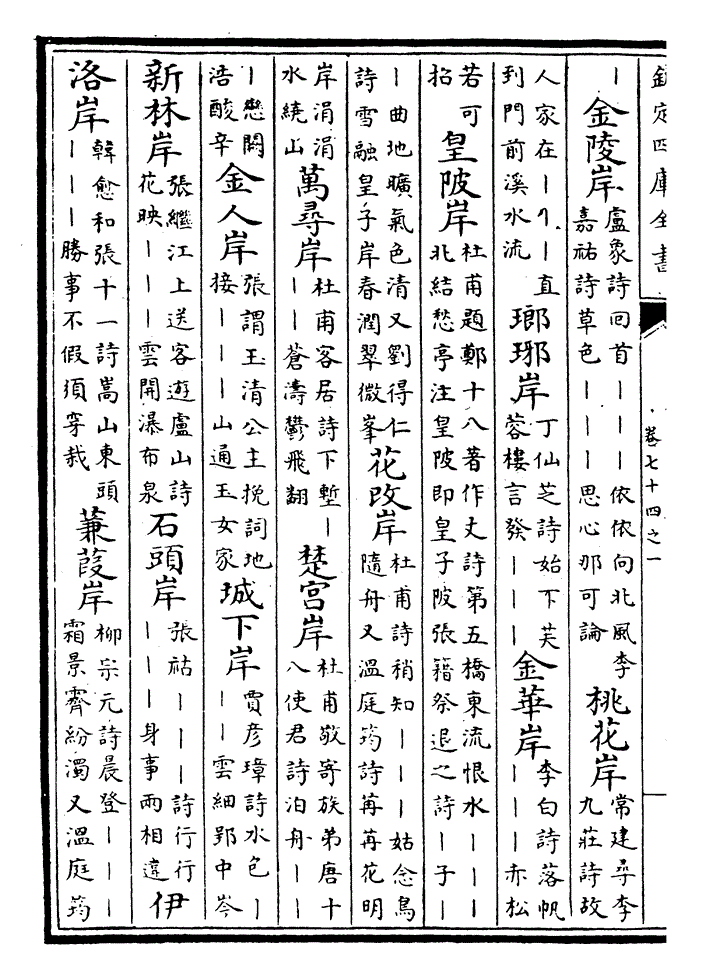 欽定四庫全書 卷七十四之一
｜金陵岸盧象詩回首｜｜｜依依向北風李嘉祐詩草色｜｜｜思心那可論桃花岸常建尋李九莊詩故
人家在｜｜｜直到門前溪水流瑯琊岸丁仙芝詩始下芙蓉樓言發｜｜｜金華岸李白詩落帆｜｜｜赤松
若可招皇陂岸杜甫題鄭十八著作丈詩第五橋東流恨水｜｜｜北結愁亭注皇陂即皇子陂張籍祭退之詩｜子｜
｜曲地曠氣色清又劉得仁詩雪融皇子岸春潤翠微峯花改岸杜甫詩稍知｜｜｜姑念鳥隨舟又溫庭筠詩苒苒花明
岸涓涓水繞山萬尋岸杜甫客居詩下塹｜｜｜蒼濤鬱飛翻楚宮岸杜甫敬寄族弟唐十八使君詩泊舟｜｜
｜戀闕浩酸辛金人岸張謂玉清公主挽詞地接｜｜｜山通玉女家城下岸賈彥璋詩水色｜｜｜雲細郢中岑
新林岸張繼江上送客遊廬山詩花映｜｜｜雲開瀑布泉石頭岸張祜｜｜｜詩行行｜｜｜身事兩相違伊
洛岸韓愈和張十一詩嵩山東頭｜｜｜勝事不假須穿栽蒹葭岸柳宗元詩晨登｜｜｜霜景霽紛濁又溫庭筠